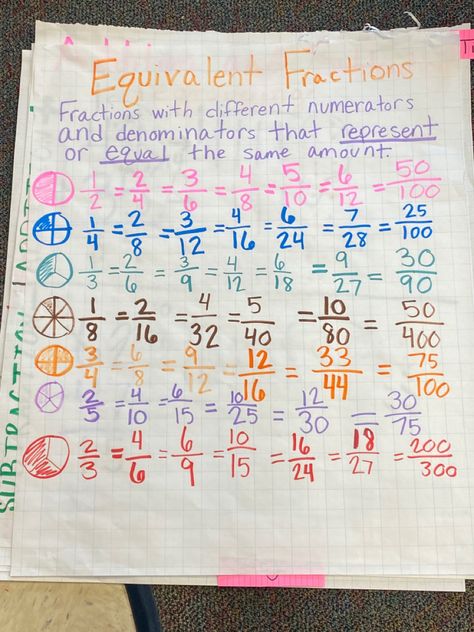 Equivalent Fractions
Fractions with different numerators
and denominators that represent
or equal the same amount.
1/2 = 2/4 = 3/6 = 4/8 = 5/10 = 6/12 = 50/100
1/4 = 2/8 = 3/12 = 4/16 = 6/24 = 7/28 = 25/100
1/3 = 2/6 = 3/9 = 4/12 = 6/18 = 9/27 = 30/90
1/8 = 2/16 = 4/32 = 5/40 = 10/80 = 50/400
3/4 = 6/8 = 9/12 = 12/16 = 33/44 = 75/100
2/5 = 4/10 = 6/15 = 10/25 = 12/30 = 30/75
2/3 = 4/6 = 6/9 = 10/15 = 16/24 = 18/27 = 200/300
SUBTRACTION